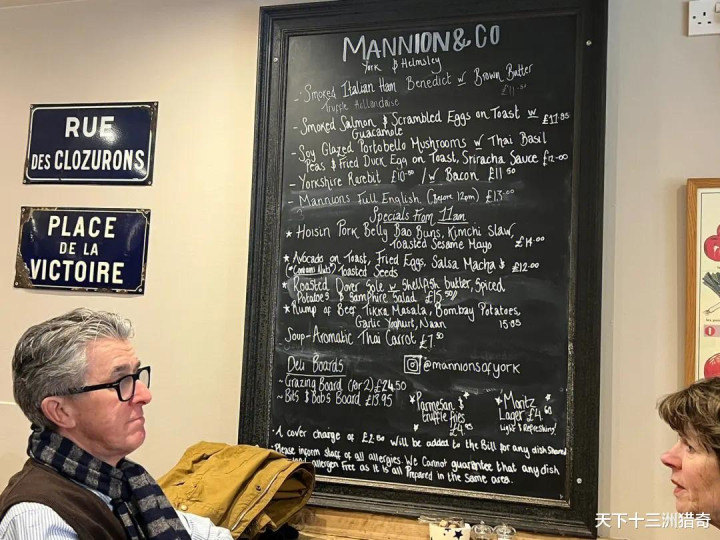 RUE
DES CLOZURONS
PLACE
DE LA
VICTOIRE
MANNION & CO
York & Helmsley
- Smoked Italian Ham Benedict w Brown Butter
Truffle Hollandaise £11.50
- Smoked Salmon & Scrambled Eggs on Toast w
Guacamole £11.95
- Soy Glazed Portobello Mushrooms w Thai Basil
Peas & Fried Duck Egg on Toast, Sriracha Sauce £12-00
- Yorkshire Rarebit £10.50 / w Bacon £11 50
- Mannions Full English (Before 12pm) £13.00
Specials From 11am
* Hoisin Pork Belly Bao Buns, Kimchi Slaw,
Toasted Sesame Mayo £14.00
* Avocado on Toast, Fried Eggs, Salsa Macha £12.00
(*Contains Nuts) Toasted Seeds
* Roasted Dover Sole w Shellfish butter, Spiced
Potatoes & Samphire Salad £15.50
* Rump of Beef Tikka Masala, Bombay Potatoes,
Garlic Yoghurt, Naan 15.95
Soup-Aromatic Thai Carrot £7.50
Deli Boards
@mannionsofyork
~ Grazing Board (for 2) £24.50
~ Bits & Bobs Board £13.95
* Parmesan &
truffle fries
£4.95
* Moritz
Lager £4.60
Light & Refreshing!
· A cover charge of £2.50 will be added to the Bill for any dish Shared
· Please inform staff of all allergies. We Cannot guarantee that any dish
allergen Free as it is all Prepared in the Same area.
天下十三洲猎奇